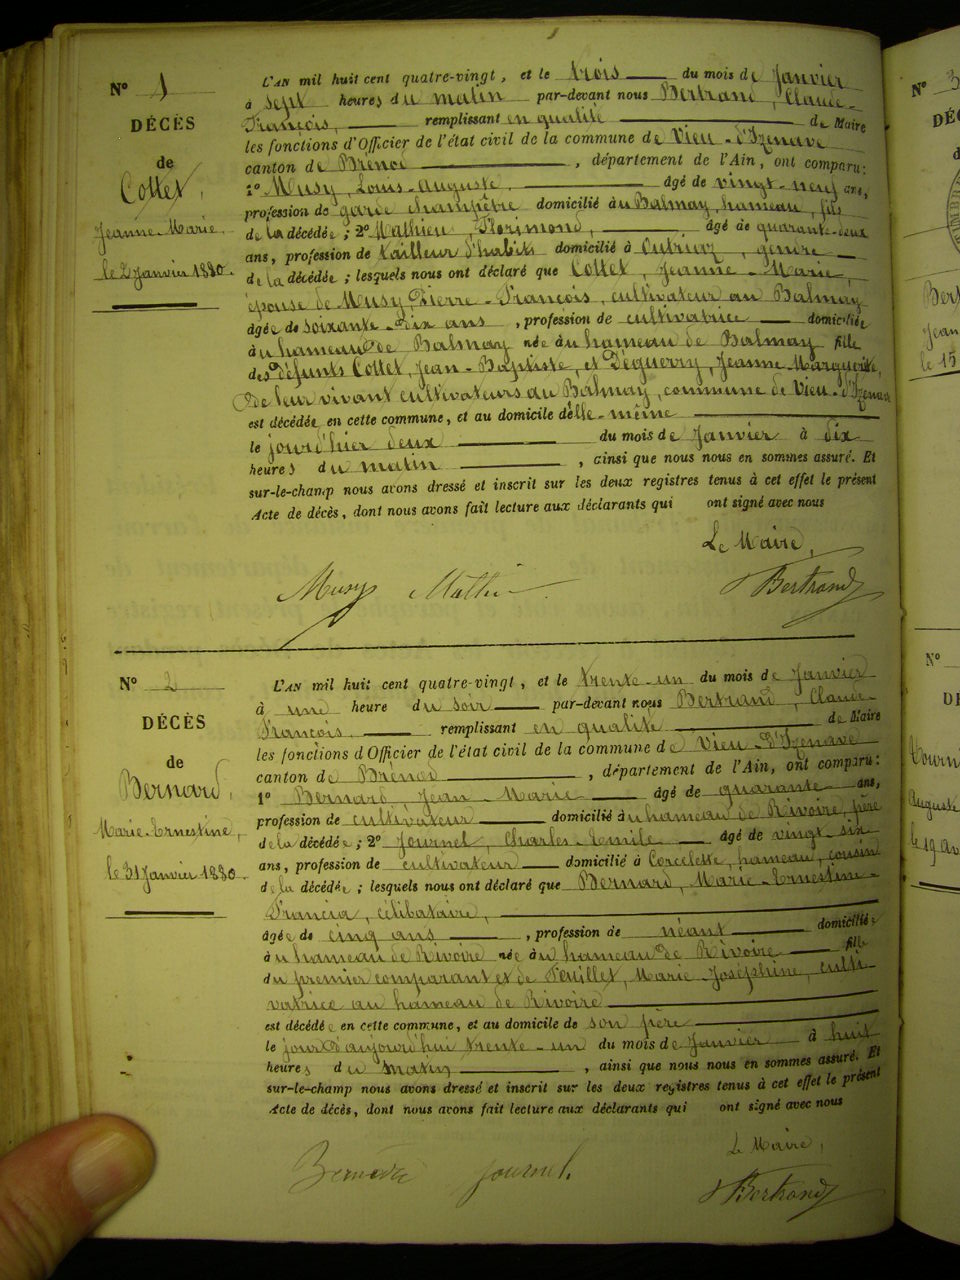 N° 1
DÉCÈS
de
Cottet,
Jeanne-Marie,
le 2 Janvier 1880.
L'AN mil huit cent quatre-vingt, et le trois du mois de Janvier
à sept heures du matin par-devant nous Bertrand, Claude-
François, remplissant en qualité de Maire
les fonctions d'Officier de l'état civil de la commune de Vieu-d'Izenave
canton de Brenod, département de l'Ain, ont comparu:
1° Musy, Louis-Auguste, âgé de vingt-neuf ans,
profession de garde champêtre domicilié au Balmay, hameau, fils
de la décédée; 2° Mathieu, Florimond, âgé de quarante-deux
ans, profession de tailleur d'habits domicilié à Outriaz, gendre
de la décédée; lesquels nous ont déclaré que Cottet, Jeanne-Marie
épouse de Musy, Pierre-François, cultivateur au Balmay
âgée de soixante-dix ans, profession de cultivatrice domiciliée
à u hameau de Balmay née à u hameau de Balmay fille
des défunts Cottet, Jean-Baptiste, et Déguerry, Jeanne Marguerite,
De leur vivant cultivateurs au Balmay, commune de Vieu-d'Izenave
est décédée en cette commune, et au domicile d'elle-même
le jour d'hier deux du mois de Janvier à dix
heures du matin, ainsi que nous nous en sommes assuré. Et
sur-le-champ nous avons dressé et inscrit sur les deux registres tenus à cet effet le présent
Acte de décès, dont nous avons fait lecture aux déclarants qui ont signé avec nous
Le Maire,
Musy Mathieu Bertrand
N° 2
DÉCÈS
de
Bernard,
Marie-Ernestine,
le 31 Janvier 1880.
L'AN mil huit cent quatre-vingt, et le trente-un du mois de Janvier
à une heure du soir par-devant nous Bertrand, Claude-
François, remplissant en qualité de Maire
les fonctions d'Officier de l'état civil de la commune de Vieu-d'Izenave
canton de Brenod, département de l'Ain, ont comparu:
1° Bernard, Jean-Marie âgé de quarante ans,
profession de cultivateur domicilié à u hameau de Rivoire, père
de la décédée; 2° Journet, Charles-Emile âgé de vingt-six
ans, profession de cultivateur domicilié à Corcelette, hameau, cousin
de la décédée; lesquels nous ont déclaré que Bernard, Marie-Ernestine-
Francia, célibataire,
âgée de cinq ans, profession de néant domiciliée
à u hameau de Rivoire née à u hameau de Rivoire fille
du premier comparant et de Feuillet, Marie-Joséphine, culti-
vatrice au hameau de Rivoire
est décédée en cette commune, et au domicile de son père
le jour d'aujourd'hui trente-un du mois de Janvier à huit
heures du matin, ainsi que nous nous en sommes assuré. Et
sur-le-champ nous avons dressé et inscrit sur les deux registres tenus à cet effet le présent
Acte de décès, dont nous avons fait lecture aux déclarants qui ont signé avec nous
Le Maire,
Bertrand
N°
DÉ
Jean
le 15
N°
DÉ
Auguste
le 19 av